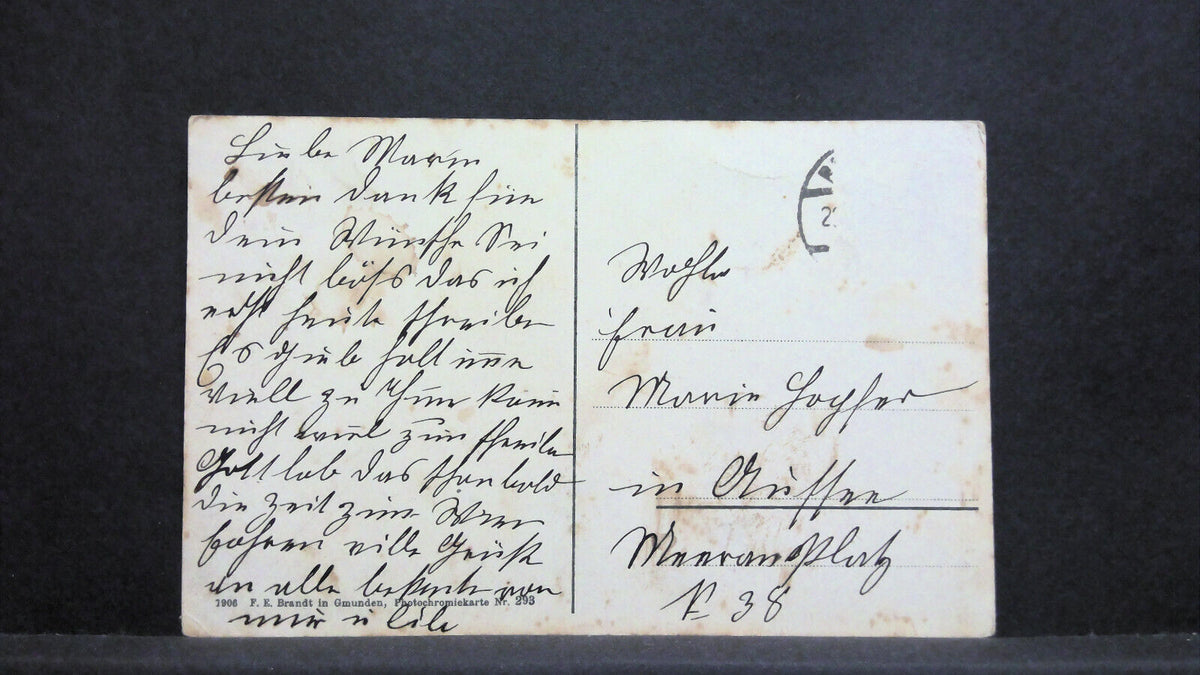 Liebe Marie
besten Dank für
dein Wünsche Sei
nicht böhs das ich
erst heute schreibe
Es gieb halt imer
viell zu Thun kaum
nicht viel zum schreiben
Gottlob das schon bald
die Zeit zum Wien
fahren ville Grüße
an alle bekante von
mir u
1906 F. E. Brandt in Gmunden, Photochromiekarte Nr. 293
2
Wohlg
Frau
Marie Hopfer
in Aussee
Meeranplatz
N 38